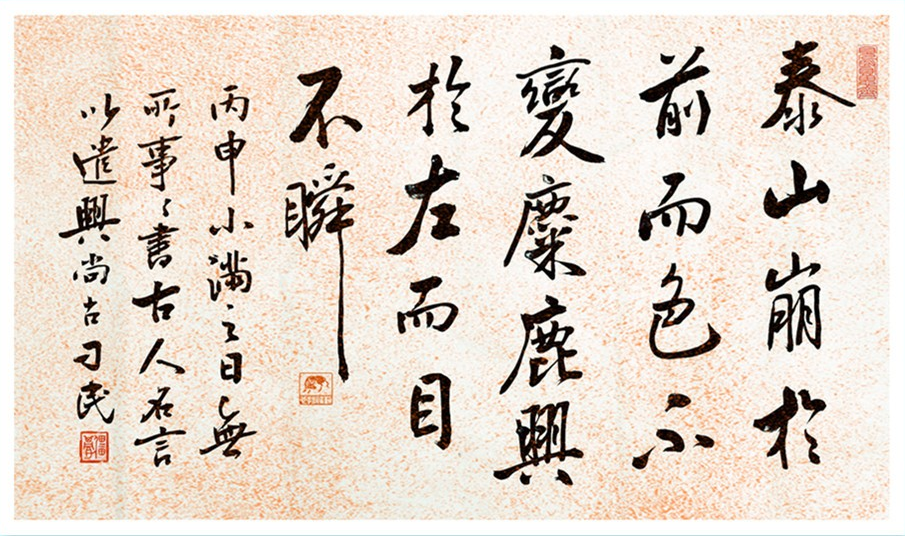 泰山崩於
前而色不
變麋鹿興
於左而目
不瞬
丙申小滿之日無
所事々書古人名言
以遣興尚古刁民